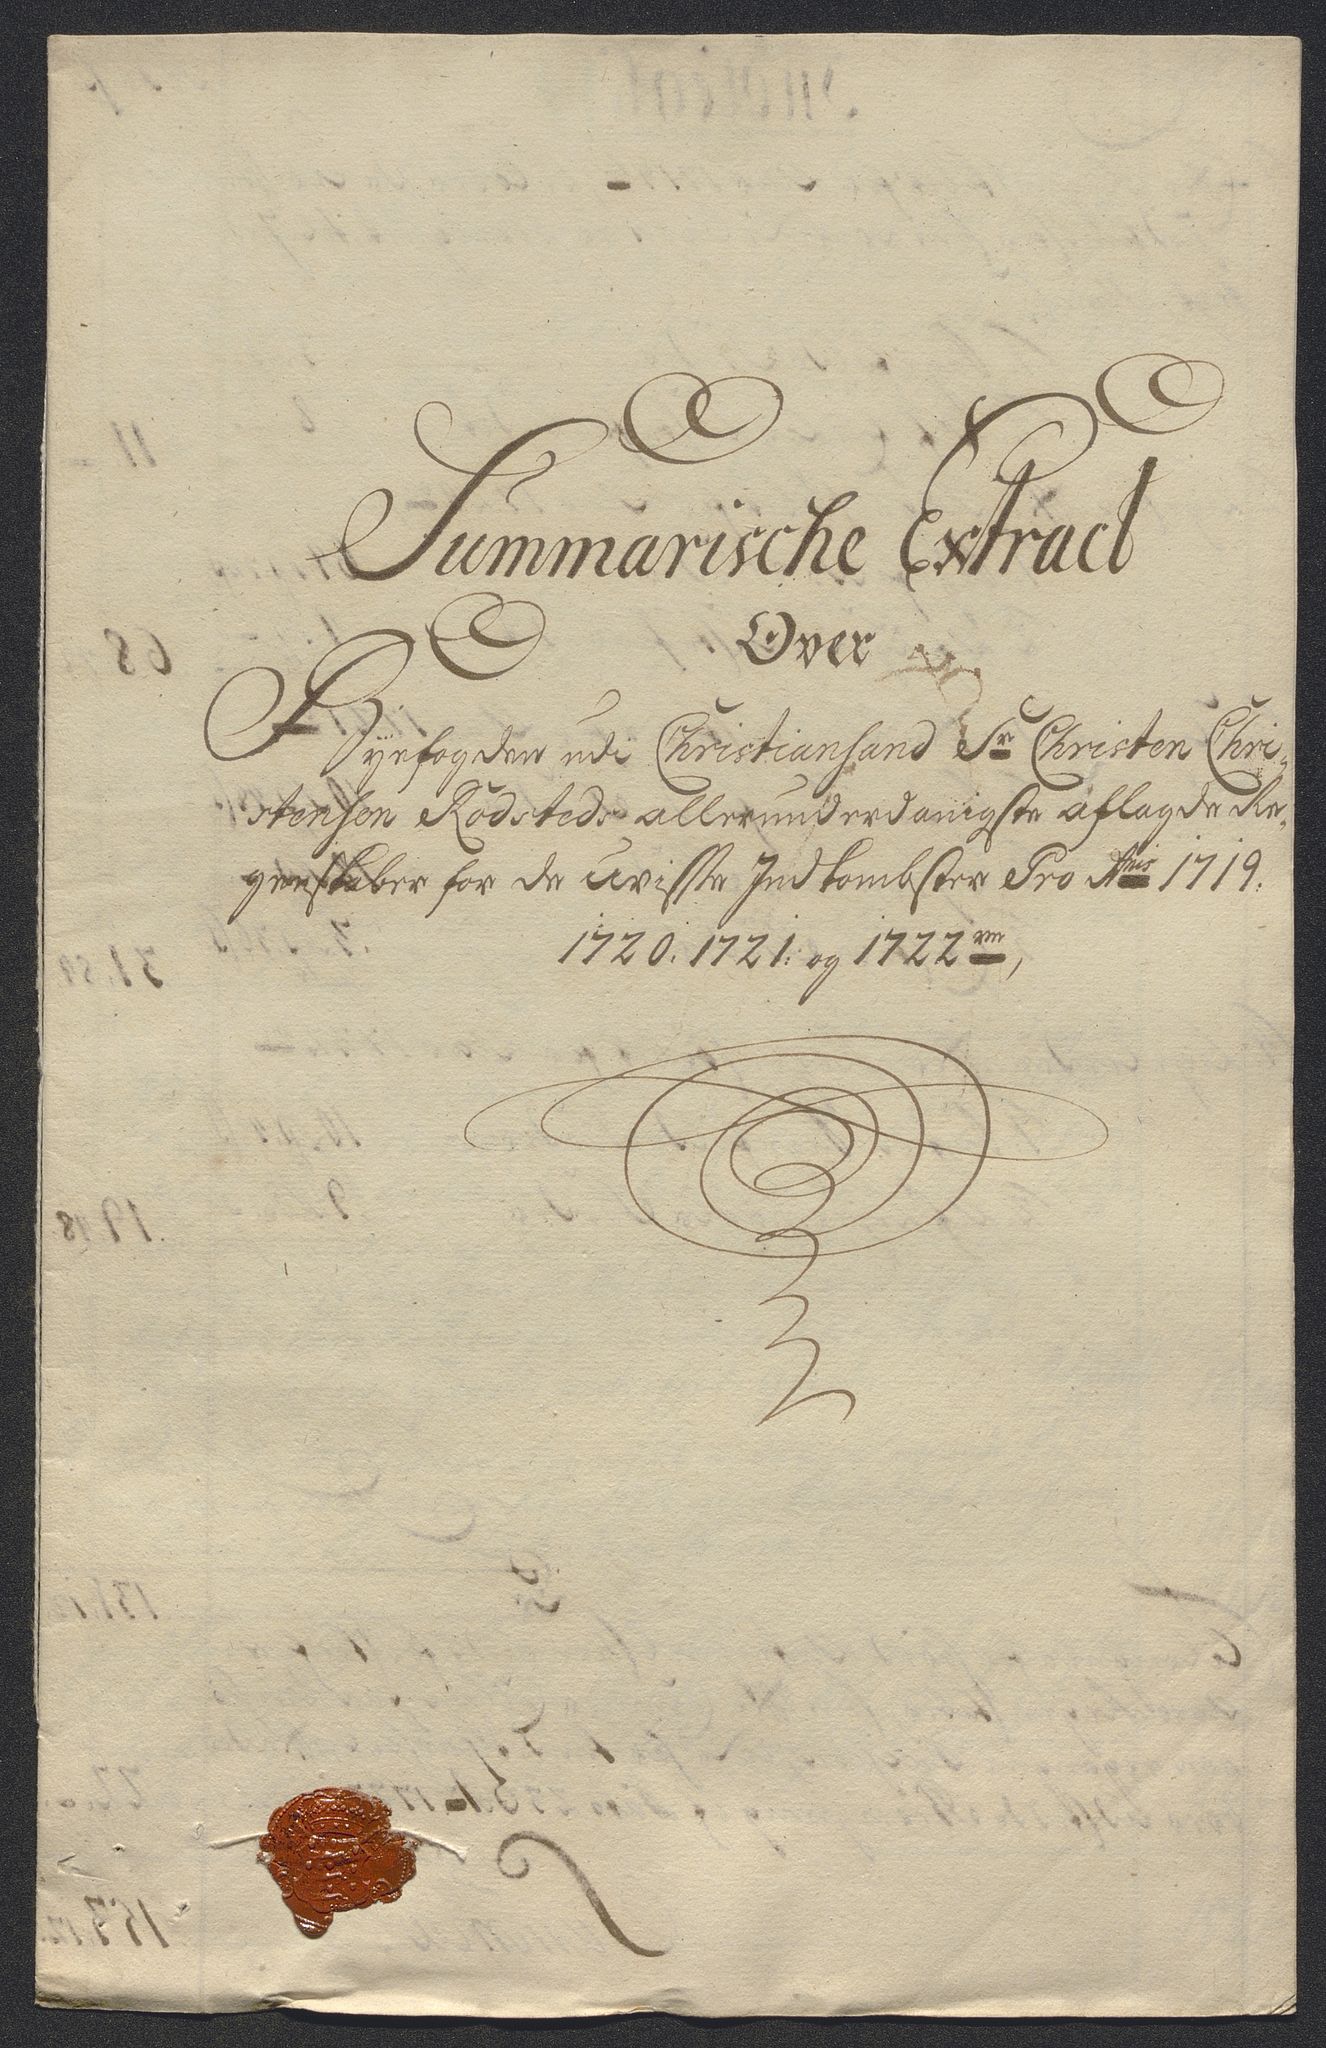 Summarische Extract
Over
Byefogden udi Christiansand Sr Christen Chri-
stensen Rödsteds allerunderdanigste aflagde Re-
genskaber for de uvisse Indkombster Pro Anis 1719.
1720. 1721. og 1722